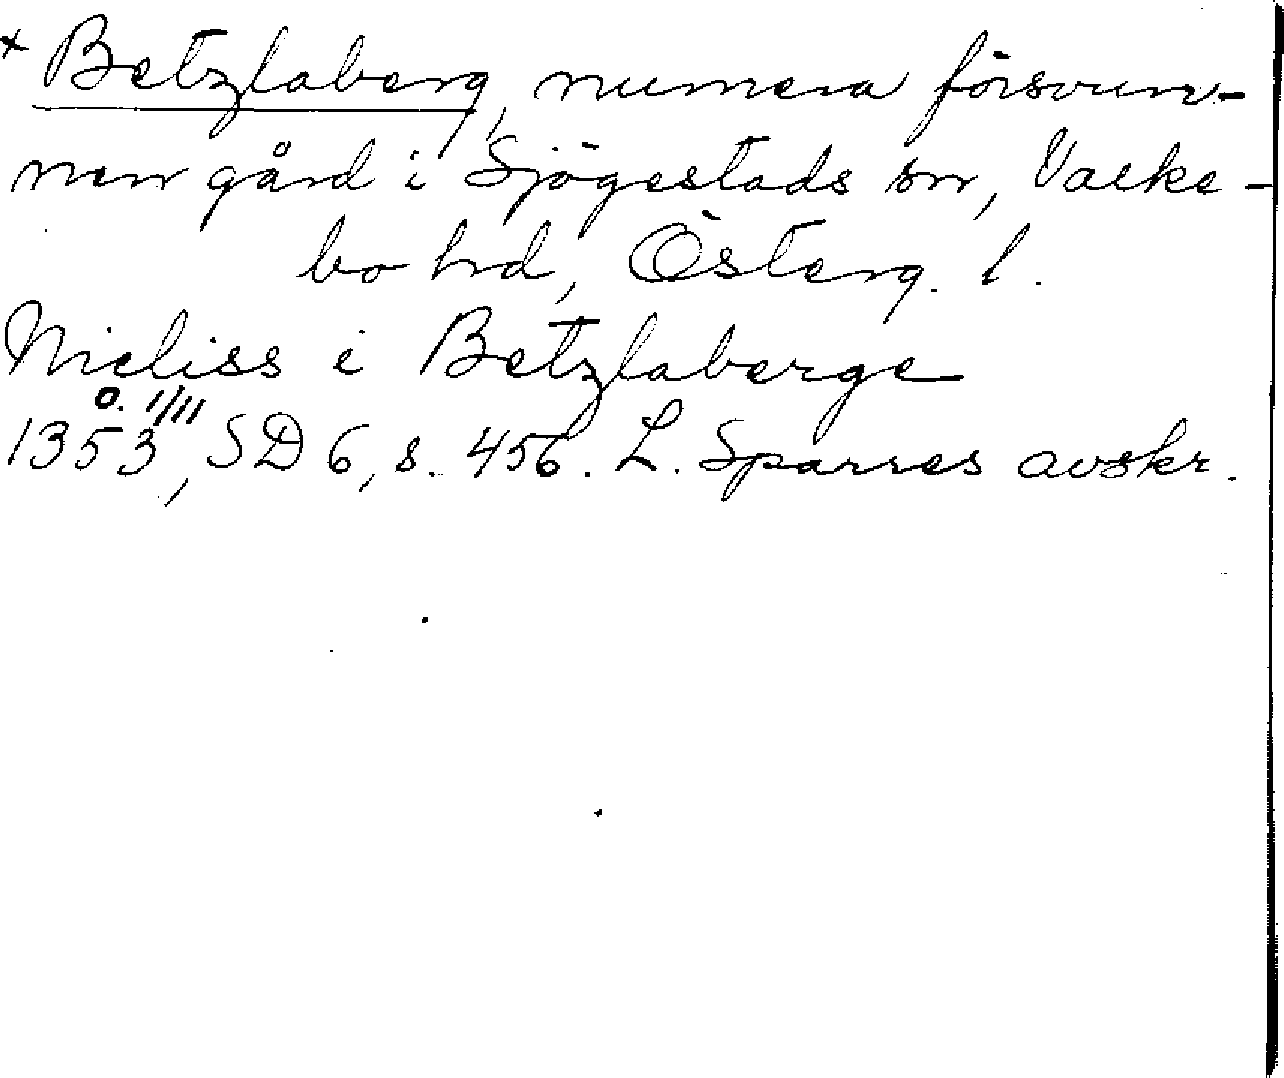 + Betzlaberg, numera försvun-
nen gård i Sjögestads sn, Valke-
bo hd, Österg. l.
Nicliss i Betzlaberge
1353 o. 1/11, SD 6, s. 456. L. Sparres avskr.